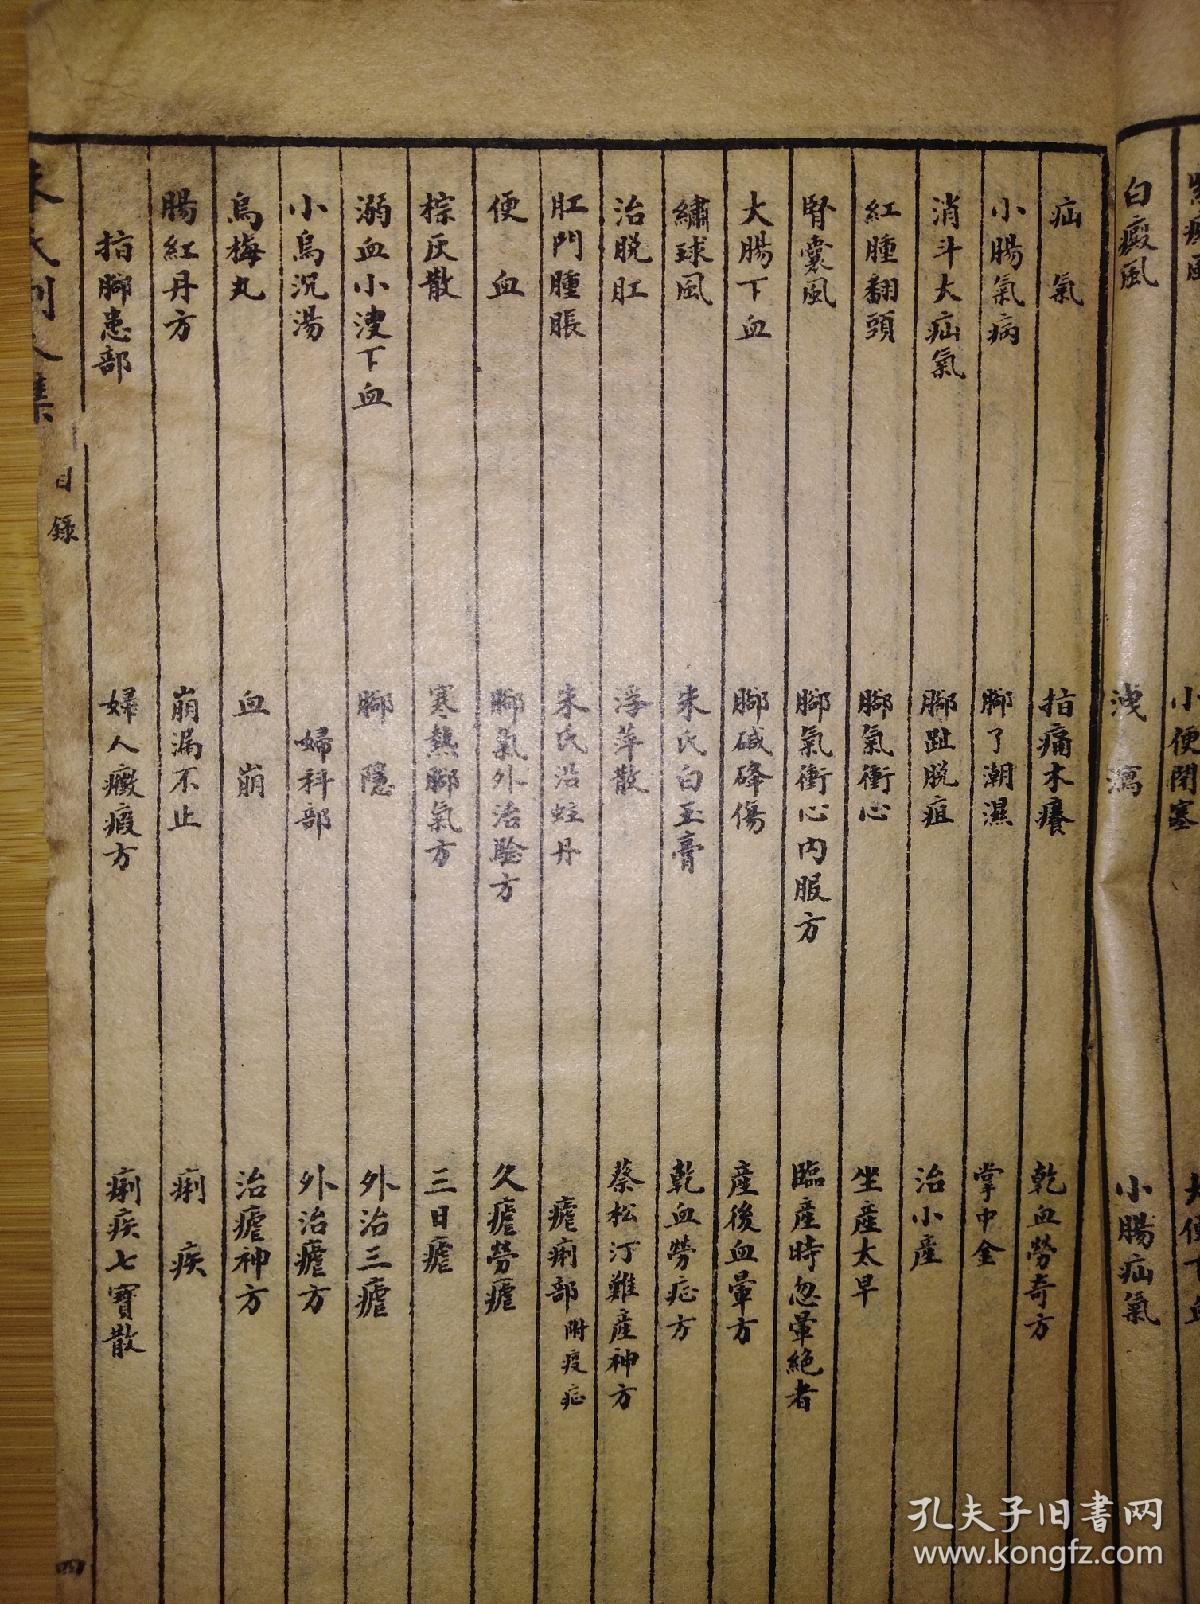 小便閉塞
白癜風
洩瀉
小腸疝氣
疝氣
小腸氣病
消斗大疝氣
紅腫翻頭
腎囊風
大腸下血
繡球風
治脫肛
肛門腫脹
便血
棕灰散
溺血小溲下血
小烏沉湯
烏梅丸
腸紅丹方
指腳患部
指痛木癢
腳了潮濕
腳趾脫疽
腳氣衝心
腳氣衝心內服方
腳碱碎傷
朱氏白玉膏
浮萍散
朱氏治蛀丹
腳氣外治驗方
寒熱腳氣方
腳隱
婦科部
血崩
崩漏不止
婦人癥瘕方
乾血勞奇方
掌中金
治小產
坐產太早
臨產時忽暈絕者
產後血暈方
乾血勞症方
蔡松汀難產神方
瘧痢部 附疫症
久瘧勞瘧
三日瘧
外治三瘧
外治瘧方
治瘧神方
痢疾
痢疾七寶散
目錄
四
孔夫子旧书网
www.kongfz.com